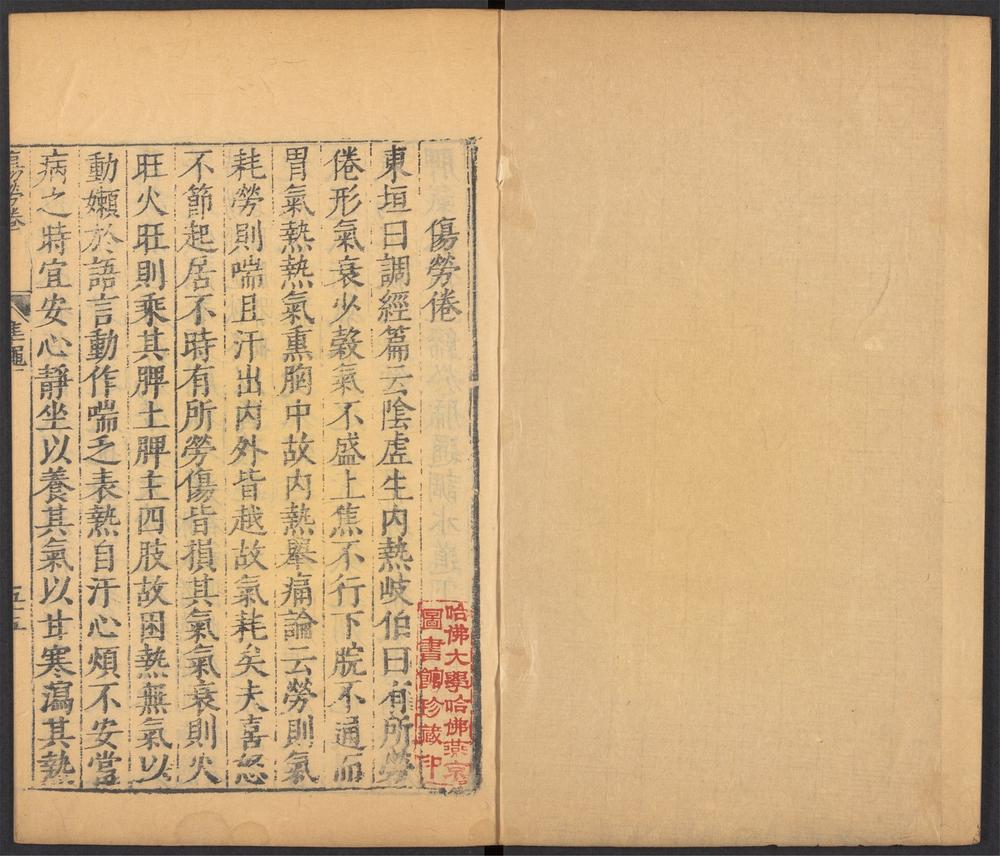 傷勞倦
東垣曰調經篇云陰虛生内熱岐伯曰有所勞
倦形氣衰少穀氣不盛上焦不行下脘不通而
胃氣熱熱氣熏胸中故内熱舉痛論云勞則氣
耗勞則喘且汗出内外皆越故氣耗矣夫喜怒
不節起居不時有所勞傷皆損其氣氣衰則火
旺火旺則乘其脾土脾主四肢故困熱無氣以
動嬾於語言動作喘乏表熱自汗心煩不安當
病之時宜安心靜坐以養其氣以甘寒瀉其熱
哈佛大學哈佛燕京
圖書館珍藏印